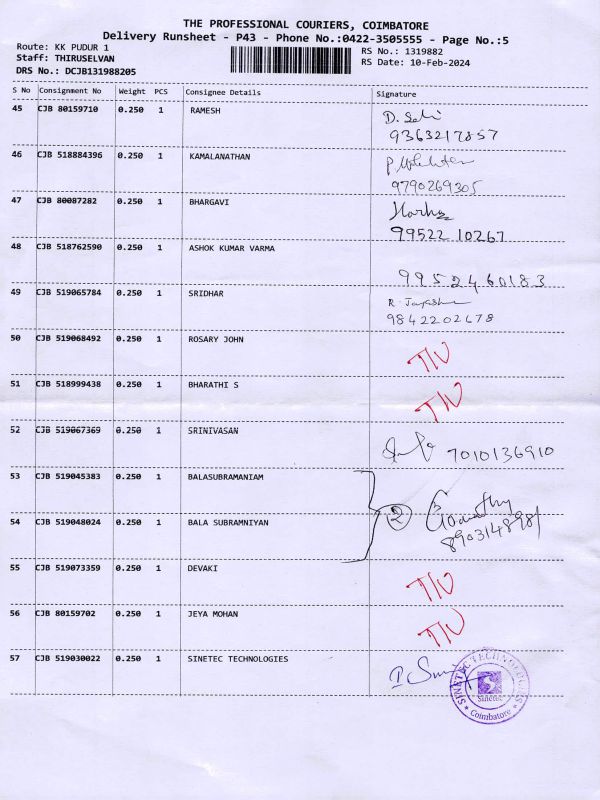 THE PROFESSIONAL COURIERS, COIMBATORE
Delivery Runsheet - P43 - Phone No.:0422-3505555 - Page No.:5
Route: KK PUDUR 1 RS No.: 1319882
Staff: THIRUSELVAN RS Date: 10-Feb-2024
DRS No.: DCJB131988205
S No Consignment No Weight PCS Consignee Details Signature
45 CJB 80159710 0.250 1 RAMESH D.
9363217857
46 CJB 518884396 0.250 1 KAMALANATHAN P
9790269305
47 CJB 80087282 0.250 1 BHARGAVI
99522 10267
48 CJB 518762590 0.250 1 ASHOK KUMAR VARMA
9952460183
49 CJB 519065784 0.250 1 SRIDHAR R.
9842202678
50 CJB 519068492 0.250 1 ROSARY JOHN
51 CJB 518999438 0.250 1 BHARATHI S
52 CJB 519067369 0.250 1 SRINIVASAN 7010136910
53 CJB 519045383 0.250 1 BALASUBRAMANIAM
2 Gomathy
54 CJB 519048024 0.250 1 BALA SUBRAMNIYAN 8903148981
55 CJB 519073359 0.250 1 DEVAKI
56 CJB 80159702 0.250 1 JEYA MOHAN
57 CJB 519030022 0.250 1 SINETEC TECHNOLOGIES
SINETEC TECHNOLOGIES
Sinetec
Coimbatore